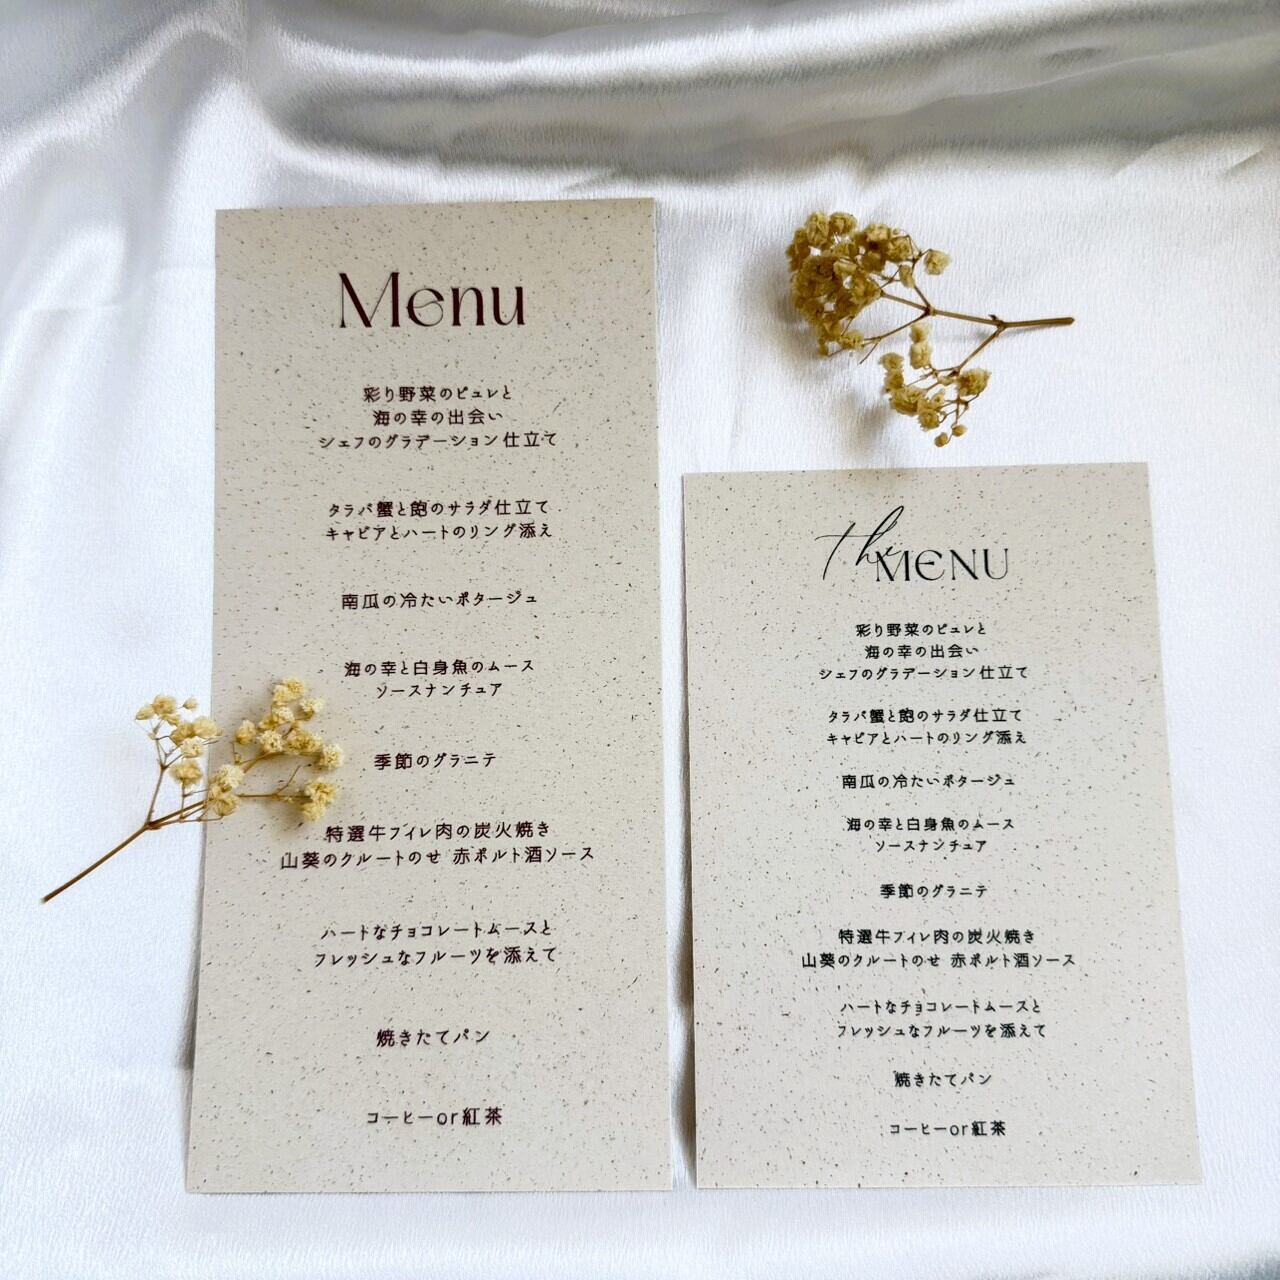 Menu
彩り野菜のピュレと
海の幸の出会い
シェフのグラデーション仕立て
タラバ蟹と鮑のサラダ仕立て
キャビアとハートのリング添え
南瓜の冷たいポタージュ
海の幸と白身魚のムース
ソースナンチュア
季節のグラニテ
特選牛フィレ肉の炭火焼き
山葵のクルートのせ 赤ポルト酒ソース
ハートなチョコレートムースと
フレッシュなフルーツを添えて
焼きたてパン
コーヒーor紅茶
the MENU
彩り野菜のピュレと
海の幸の出会い
シェフのグラデーション仕立て
タラバ蟹と鮑のサラダ仕立て
キャビアとハートのリング添え
南瓜の冷たいポタージュ
海の幸と白身魚のムース
ソースナンチュア
季節のグラニテ
特選牛フィレ肉の炭火焼き
山葵のクルートのせ 赤ポルト酒ソース
ハートなチョコレートムースと
フレッシュなフルーツを添えて
焼きたてパン
コーヒーor紅茶